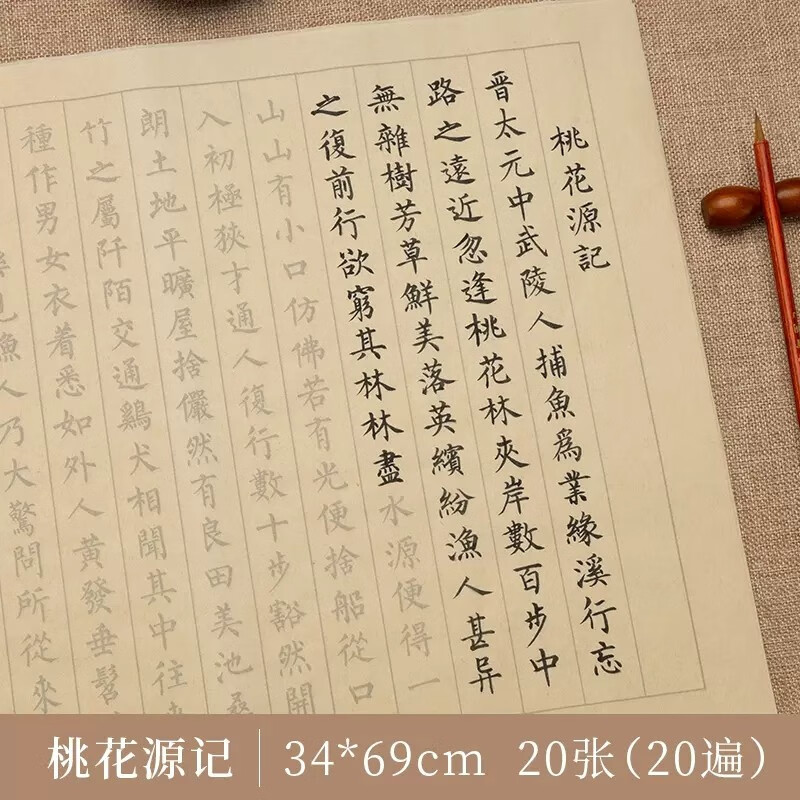 桃花源記
晋太元中武陵人捕魚為業緣溪行忘
路之遠近忽逢桃花林夾岸數百步中
無雜樹芳草鮮美落英繽紛漁人甚异
之復前行欲窮其林林盡水源便得一
山山有小口仿佛若有光便捨船從口
入初極狹才通人復行數十步豁然開
朗土地平曠屋捨儼然有良田美池桑
竹之屬阡陌交通鷄犬相聞其中往來
種作男女衣着悉如外人黄發垂髫
見漁人乃大驚問所從來
桃花源记 34*69cm 20张(20遍)